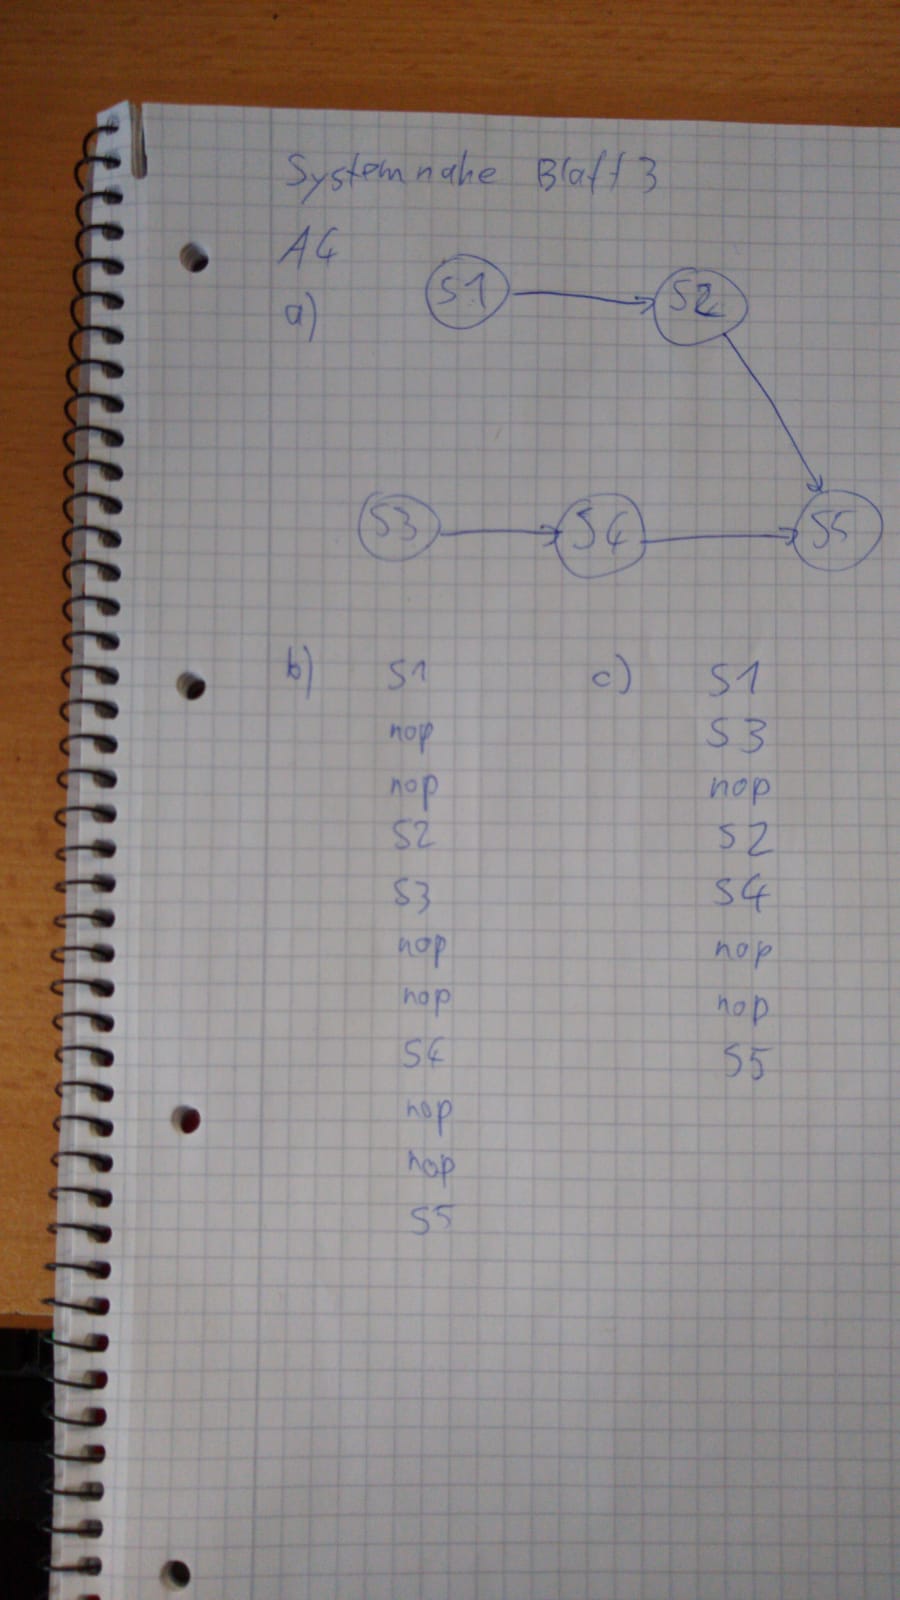 Systemnahe Blatt 3
A4
a)
S1 S2
S3 S4 S5
b) S1
nop
nop
S2
S3
nop
nop
S4
nop
nop
S5
c) S1
S3
nop
S2
S4
nop
nop
S5